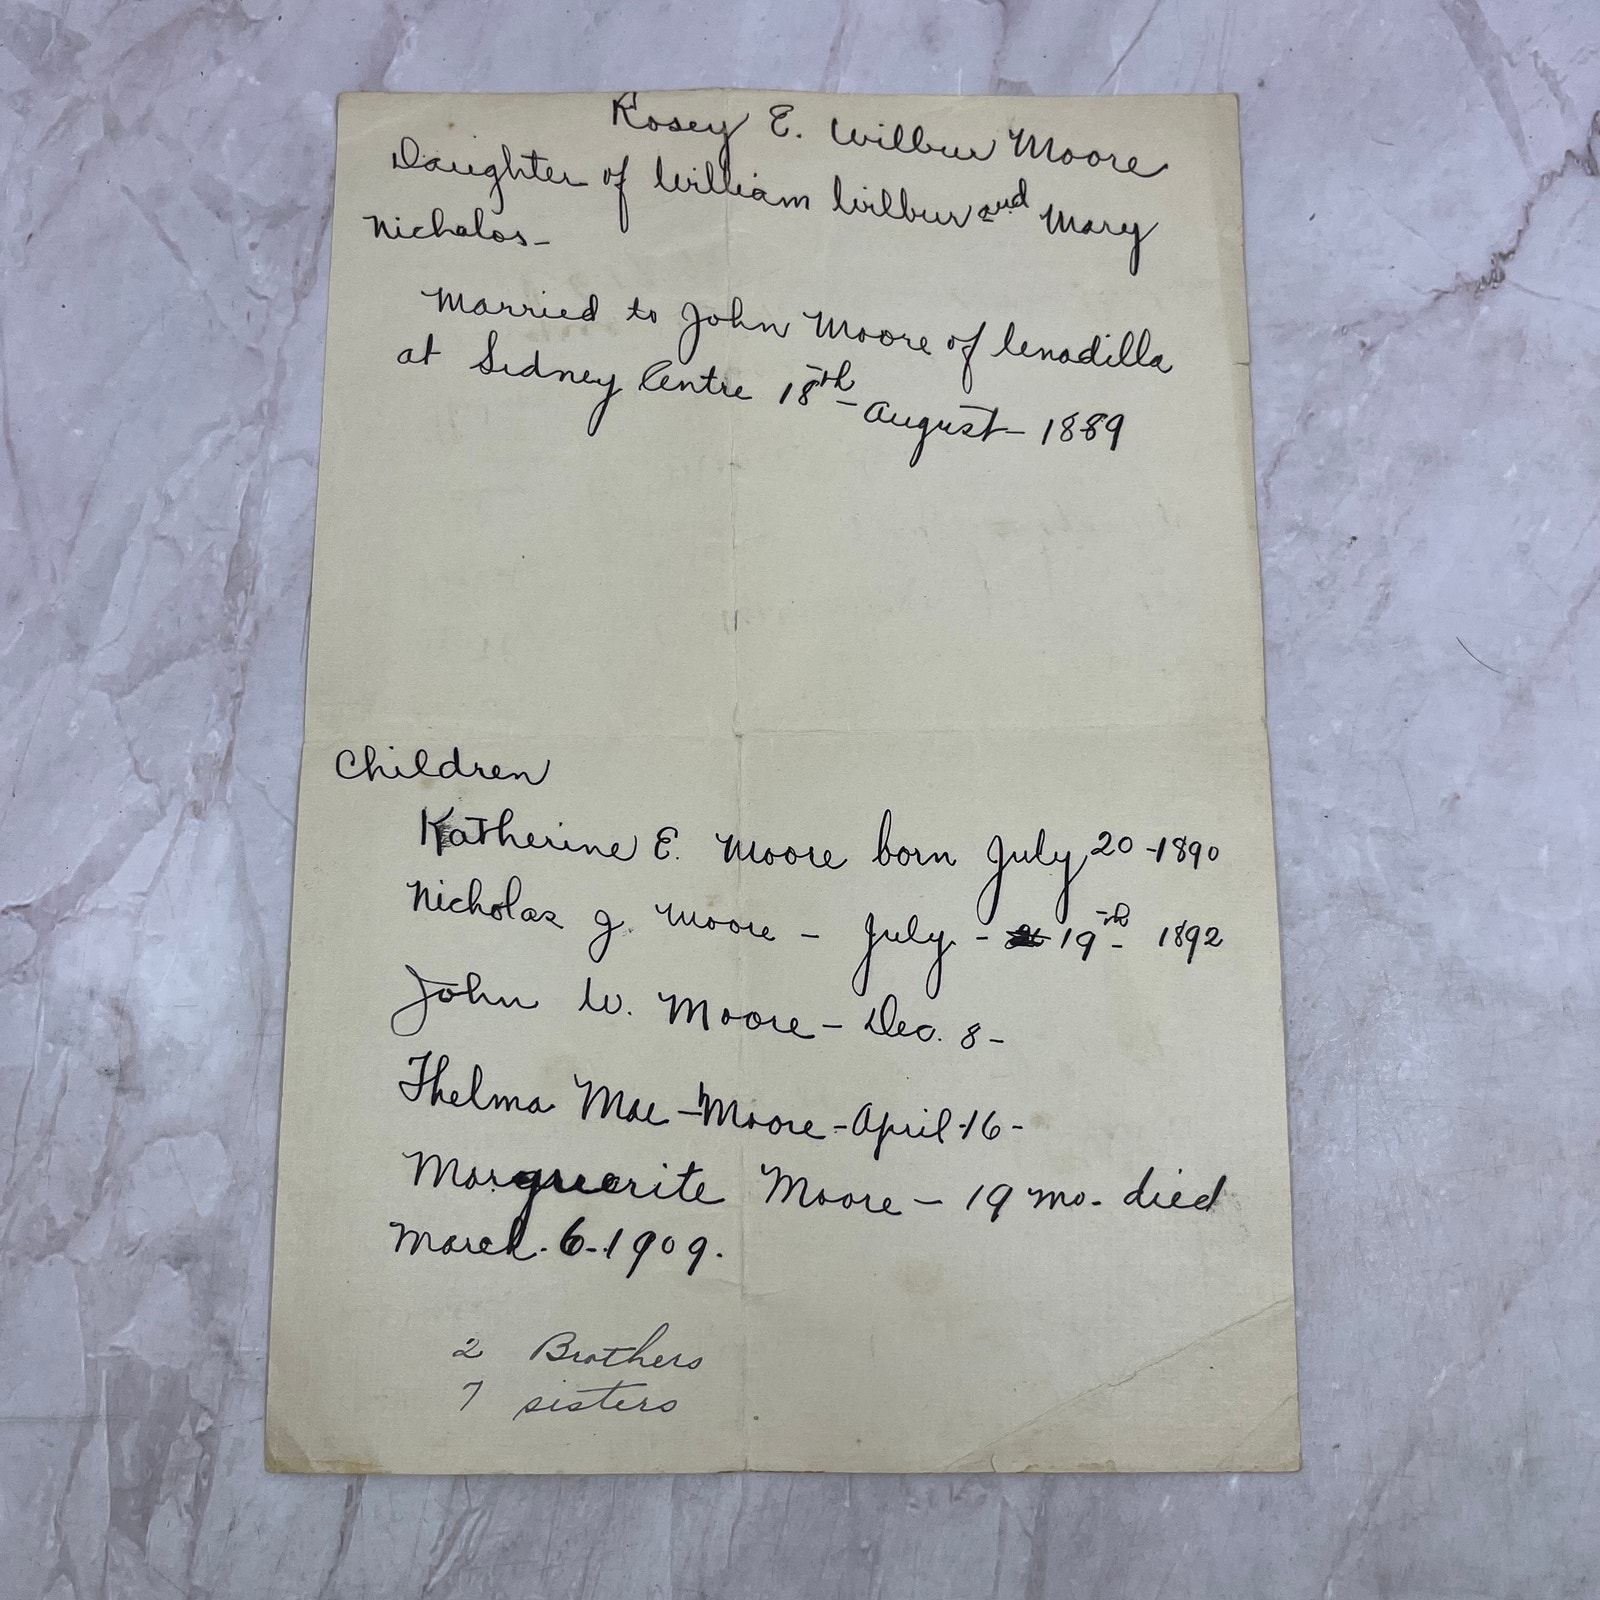 Rosey E. Wilbur Moore
Daughter of William Wilbur and Mary
Nicholos-
Married to John Moore of Unadilla
at Sidney Centre 18th August - 1889
Children
Katherine E. Moore born July 20-1890
Nicholas J. Moore - July - 19th- 1892
John W. Moore - Dec. 8-
Thelma Mae - Moore - April-16-
Marguerite Moore - 19 mo- died
March. 6-1909.
2 Brothers
7 sisters